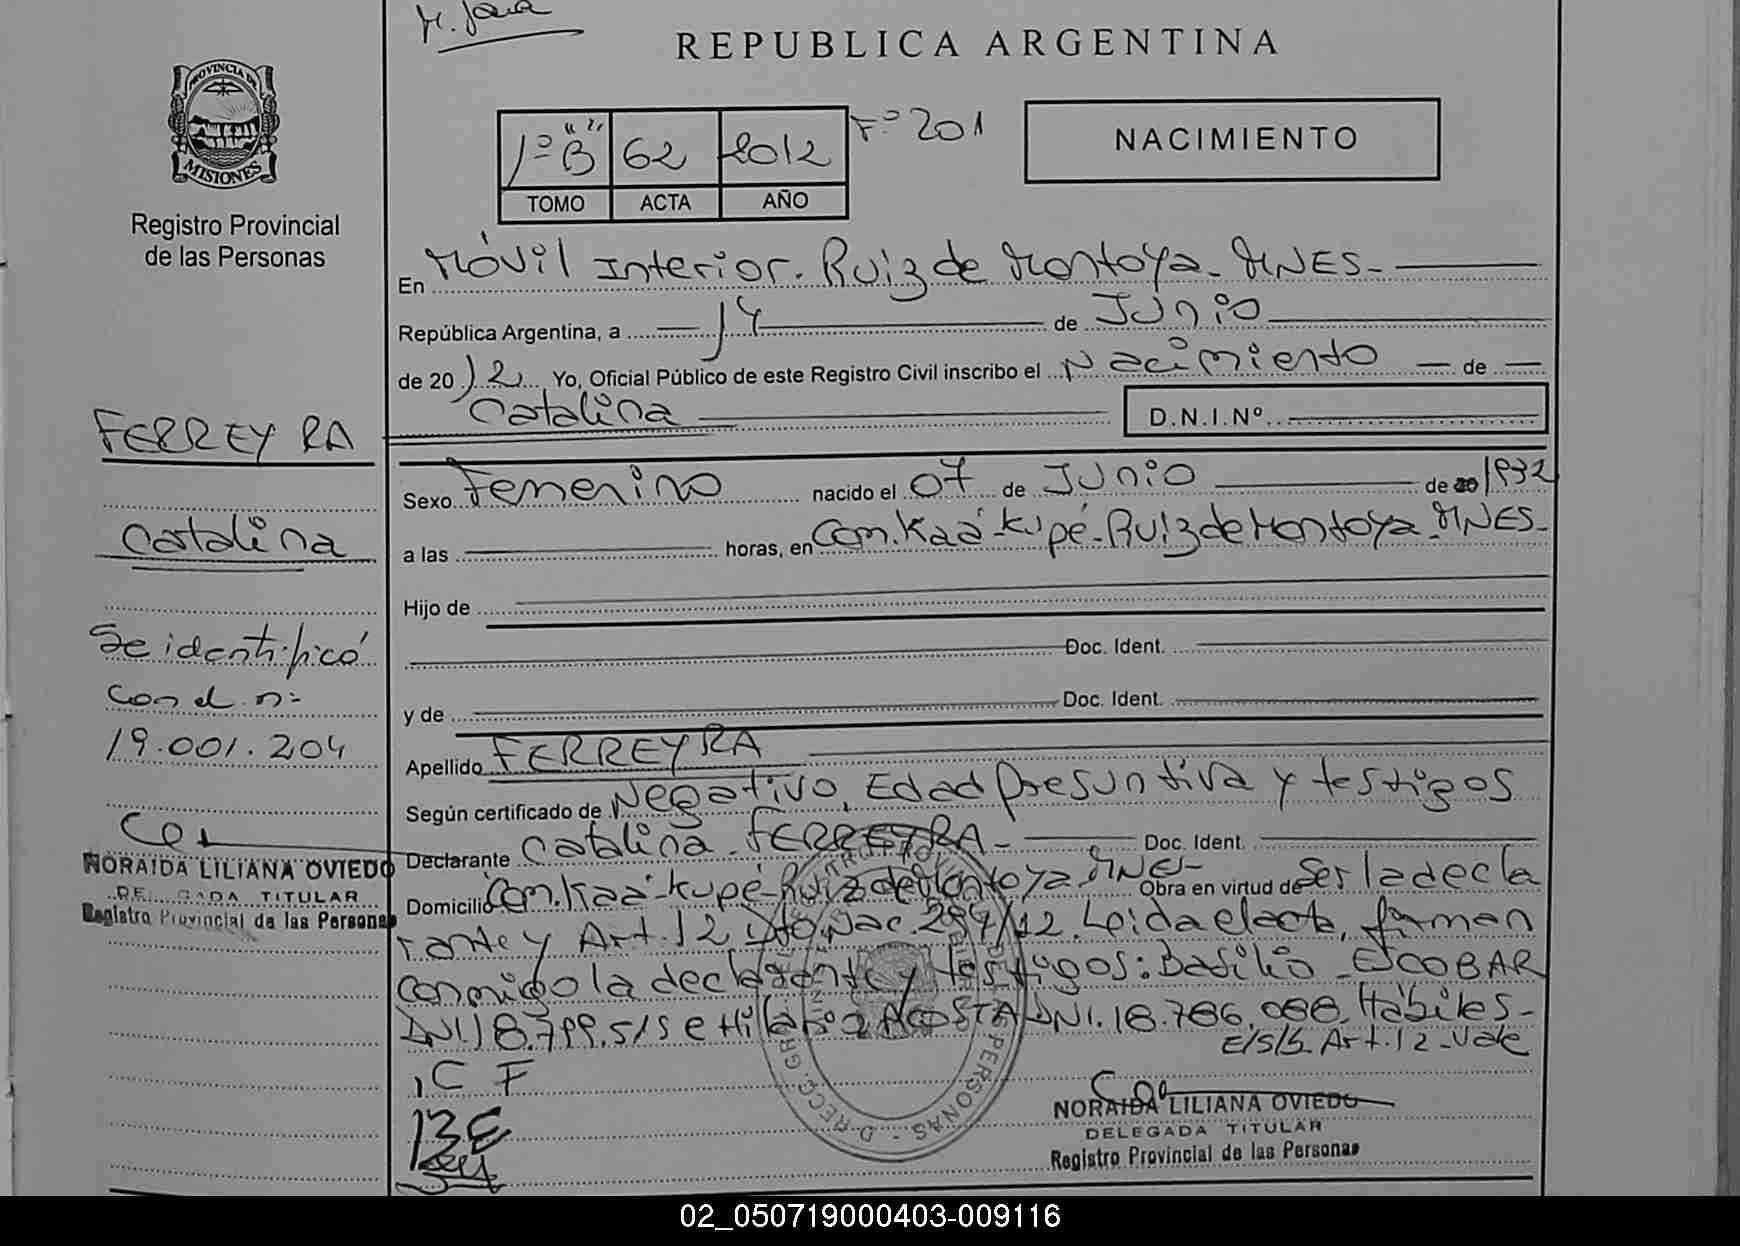 REPUBLICA ARGENTINA
PROVINCIA DE
MISIONES
Registro Provincial
de las Personas
1º "B" 62 2012 Fº 201
TOMO ACTA AÑO
NACIMIENTO
En Móvil Interior. Ruiz de Montoya - MNES -
República Argentina, a 14 de Junio
de 20 12 Yo, Oficial Público de este Registro Civil inscribo el Nacimiento de
Catalina D.N.I.Nº
FERREYRA
Catalina
Se identificó
con d.n:
19.001.204
NORAIDA LILIANA OVIEDO
DELEGADA TITULAR
Registro Provincial de las Personas
Sexo Femenino nacido el 07 de Junio de 20 1932
a las horas, en Com. Kaá-kupé - Ruiz de Montoya - MNES -
Hijo de
Doc. Ident.
y de Doc. Ident.
Apellido FERREYRA
Según certificado de Negativo, Edad presuntiva y testigos
Declarante Catalina FERREYRA - Doc. Ident.
Domicilio Com. Kaá-kupé - Ruiz de Montoya MNES - Obra en virtud de Ser la decla
rante y Art. 12 Dto Nac 297/12. Leida el acta, firman
conmigo la declarante y testigos: Basilio ESCOBAR
DNI 18.799.515 e Hilario ACOSTA DNI. 18.786.088 Hábiles -
E/S/S. Art. 12 - Vale
C F
BE
NORAIDA LILIANA OVIEDO
DELEGADA TITULAR
Registro Provincial de las Personas
02_050719000403-009116